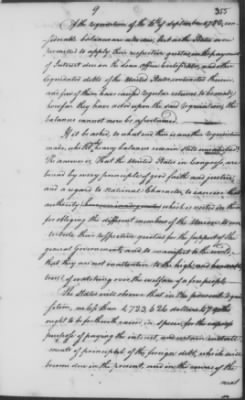 9 355
Of the requisition of the 4th of September 1782, con-
siderable balances are also due, but as the States are
permitted to apply their respective quotas in the payment
of Interest due on the Loan office Certificates, and other
liquidated debts of the United States contracted therein
and few of them have raised regular returns to be made,
how far they have acted upon the said requisitions, the
balances cannot now be ascertained.
If it be asked, to what end there is another requisition
made, whilst so many balances remain
The answer is, That the United States in Congress, are
bound by every principle of good faith and justice,
and a regard to National Character, to exercise that
authority which is vested in them
for obliging the different members of the Union, to con-
tribute their respective quotas for the support of the
general Government; and to manifest to the world,
that they are not inattentive to the high and
of watching over the welfare of a free people.
The States will observe that in the present requi-
sition, no less
ought to be forth with in specie for the
purpose of paying the interest, and certain instal-
ments of principal of the foreign debt, which will
become due in the present, and in the course of the
next